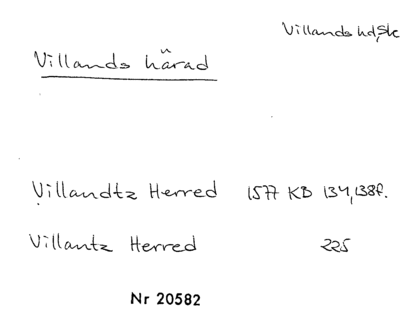 Villands hd, Sk
Villands härad
Villandtz Herred 1577 KB 134, 138f.
Villantz Herred 225
Nr 20582